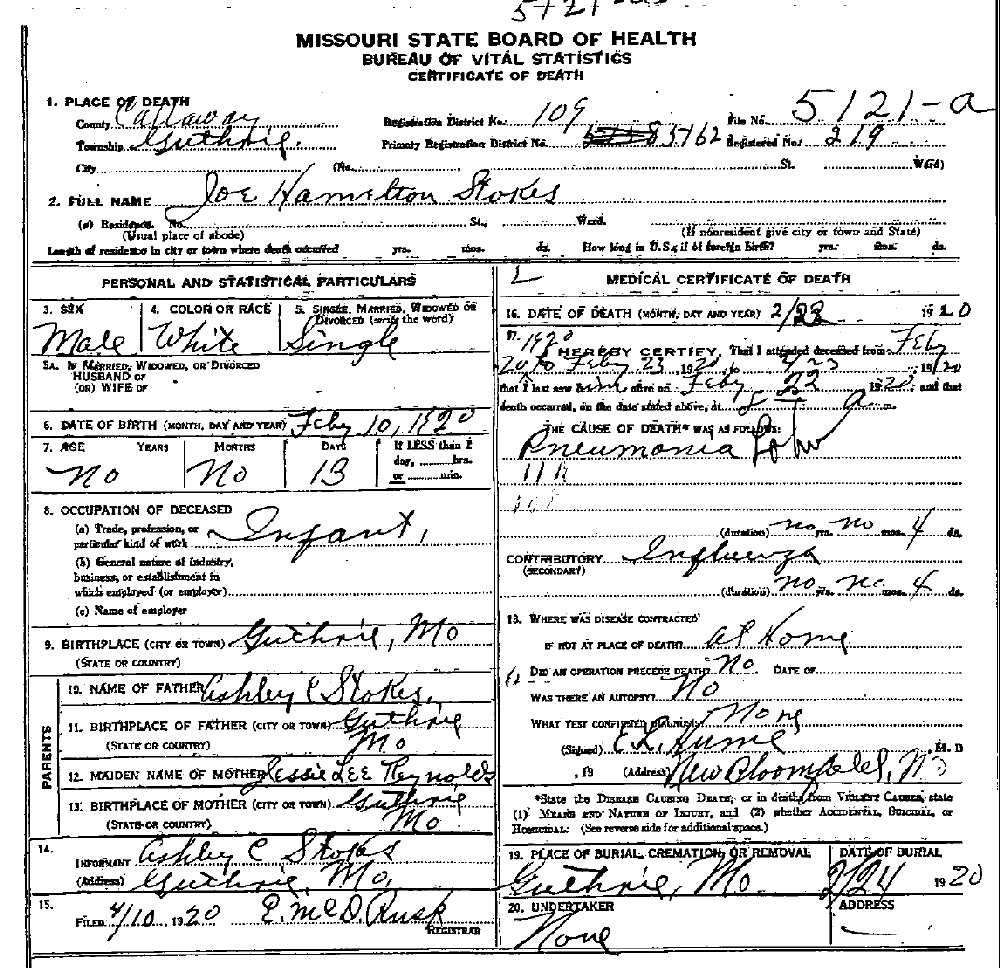 MISSOURI STATE BOARD OF HEALTH
BUREAU OF VITAL STATISTICS
CERTIFICATE OF DEATH
1. PLACE OF DEATH
County Callaway Registration District No. 109 File No. 5121-a
Township Guthrie. Primary Registration District No. 5762 Registered No. 219
City (No. St. Ward)
2. FULL NAME Joe Hamelton Stokes
(a) Residence. No. St., Ward.
(Usual place of abode) (If nonresident give city or town and State)
Length of residence in city or town where death occurred yrs. mos. ds. How long in U.S., if of foreign birth? yrs. mos. ds.
PERSONAL AND STATISTICAL PARTICULARS
3. SEX 4. COLOR OR RACE 5. SINGLE, MARRIED, WIDOWED OR
DIVORCED (write the word)
Male White Single
5A. IF MARRIED, WIDOWED, OR DIVORCED
HUSBAND OF
(OR) WIFE OF
6. DATE OF BIRTH (MONTH, DAY AND YEAR) Feby 10, 1920
7. AGE YEARS MONTHS DAYS If LESS than 1
day, hrs.
or min.
No No 13
8. OCCUPATION OF DECEASED
(a) Trade, profession, or
particular kind of work Infant,
(b) General nature of industry,
business, or establishment in
which employed (or employer)
(c) Name of employer
9. BIRTHPLACE (CITY OR TOWN) Guthrie, Mo
(STATE OR COUNTRY)
PARENTS
10. NAME OF FATHER Ashley C Stokes,
11. BIRTHPLACE OF FATHER (CITY OR TOWN) Guthrie
(STATE OR COUNTRY) Mo
12. MAIDEN NAME OF MOTHER Jessie Lee Reynolds
13. BIRTHPLACE OF MOTHER (CITY OR TOWN) Guthrie
(STATE OR COUNTRY) Mo
14.
INFORMANT Ashley C Stokes
(Address) Guthrie, Mo,
15.
FILED 4/10, 1920 E. McD. Rusk
REGISTRAR
MEDICAL CERTIFICATE OF DEATH
16. DATE OF DEATH (MONTH, DAY AND YEAR) 2/23 1920
17. 1920
I HEREBY CERTIFY, That I attended deceased from Feby
20, to Feby 23, 1920
that I last saw him alive on Feby 22 1920, and that
death occurred, on the date stated above, at 8 a
THE CAUSE OF DEATH* WAS AS FOLLOWS:
Pneumonia
(duration) no yrs. no mos. 4 ds.
CONTRIBUTORY Influenza
(SECONDARY)
(duration) no yrs. no mos. 4 ds.
18. WHERE WAS DISEASE CONTRACTED
IF NOT AT PLACE OF DEATH? at Home
DID AN OPERATION PRECEDE DEATH? No. DATE OF
WAS THERE AN AUTOPSY? No
WHAT TEST CONFIRMED DIAGNOSIS? None
(Signed) E L Hume, M. D
, 19 (Address) New Bloomfield, Mo
*State the DISEASE CAUSING DEATH, or in deaths from VIOLENT CAUSES, state
(1) MEANS AND NATURE OF INJURY, and (2) whether ACCIDENTAL, SUICIDAL, or
HOMICIDAL. (See reverse side for additional space.)
19. PLACE OF BURIAL, CREMATION, OR REMOVAL DATE OF BURIAL
Guthrie, Mo. 2/24 1920
20. UNDERTAKER ADDRESS
None